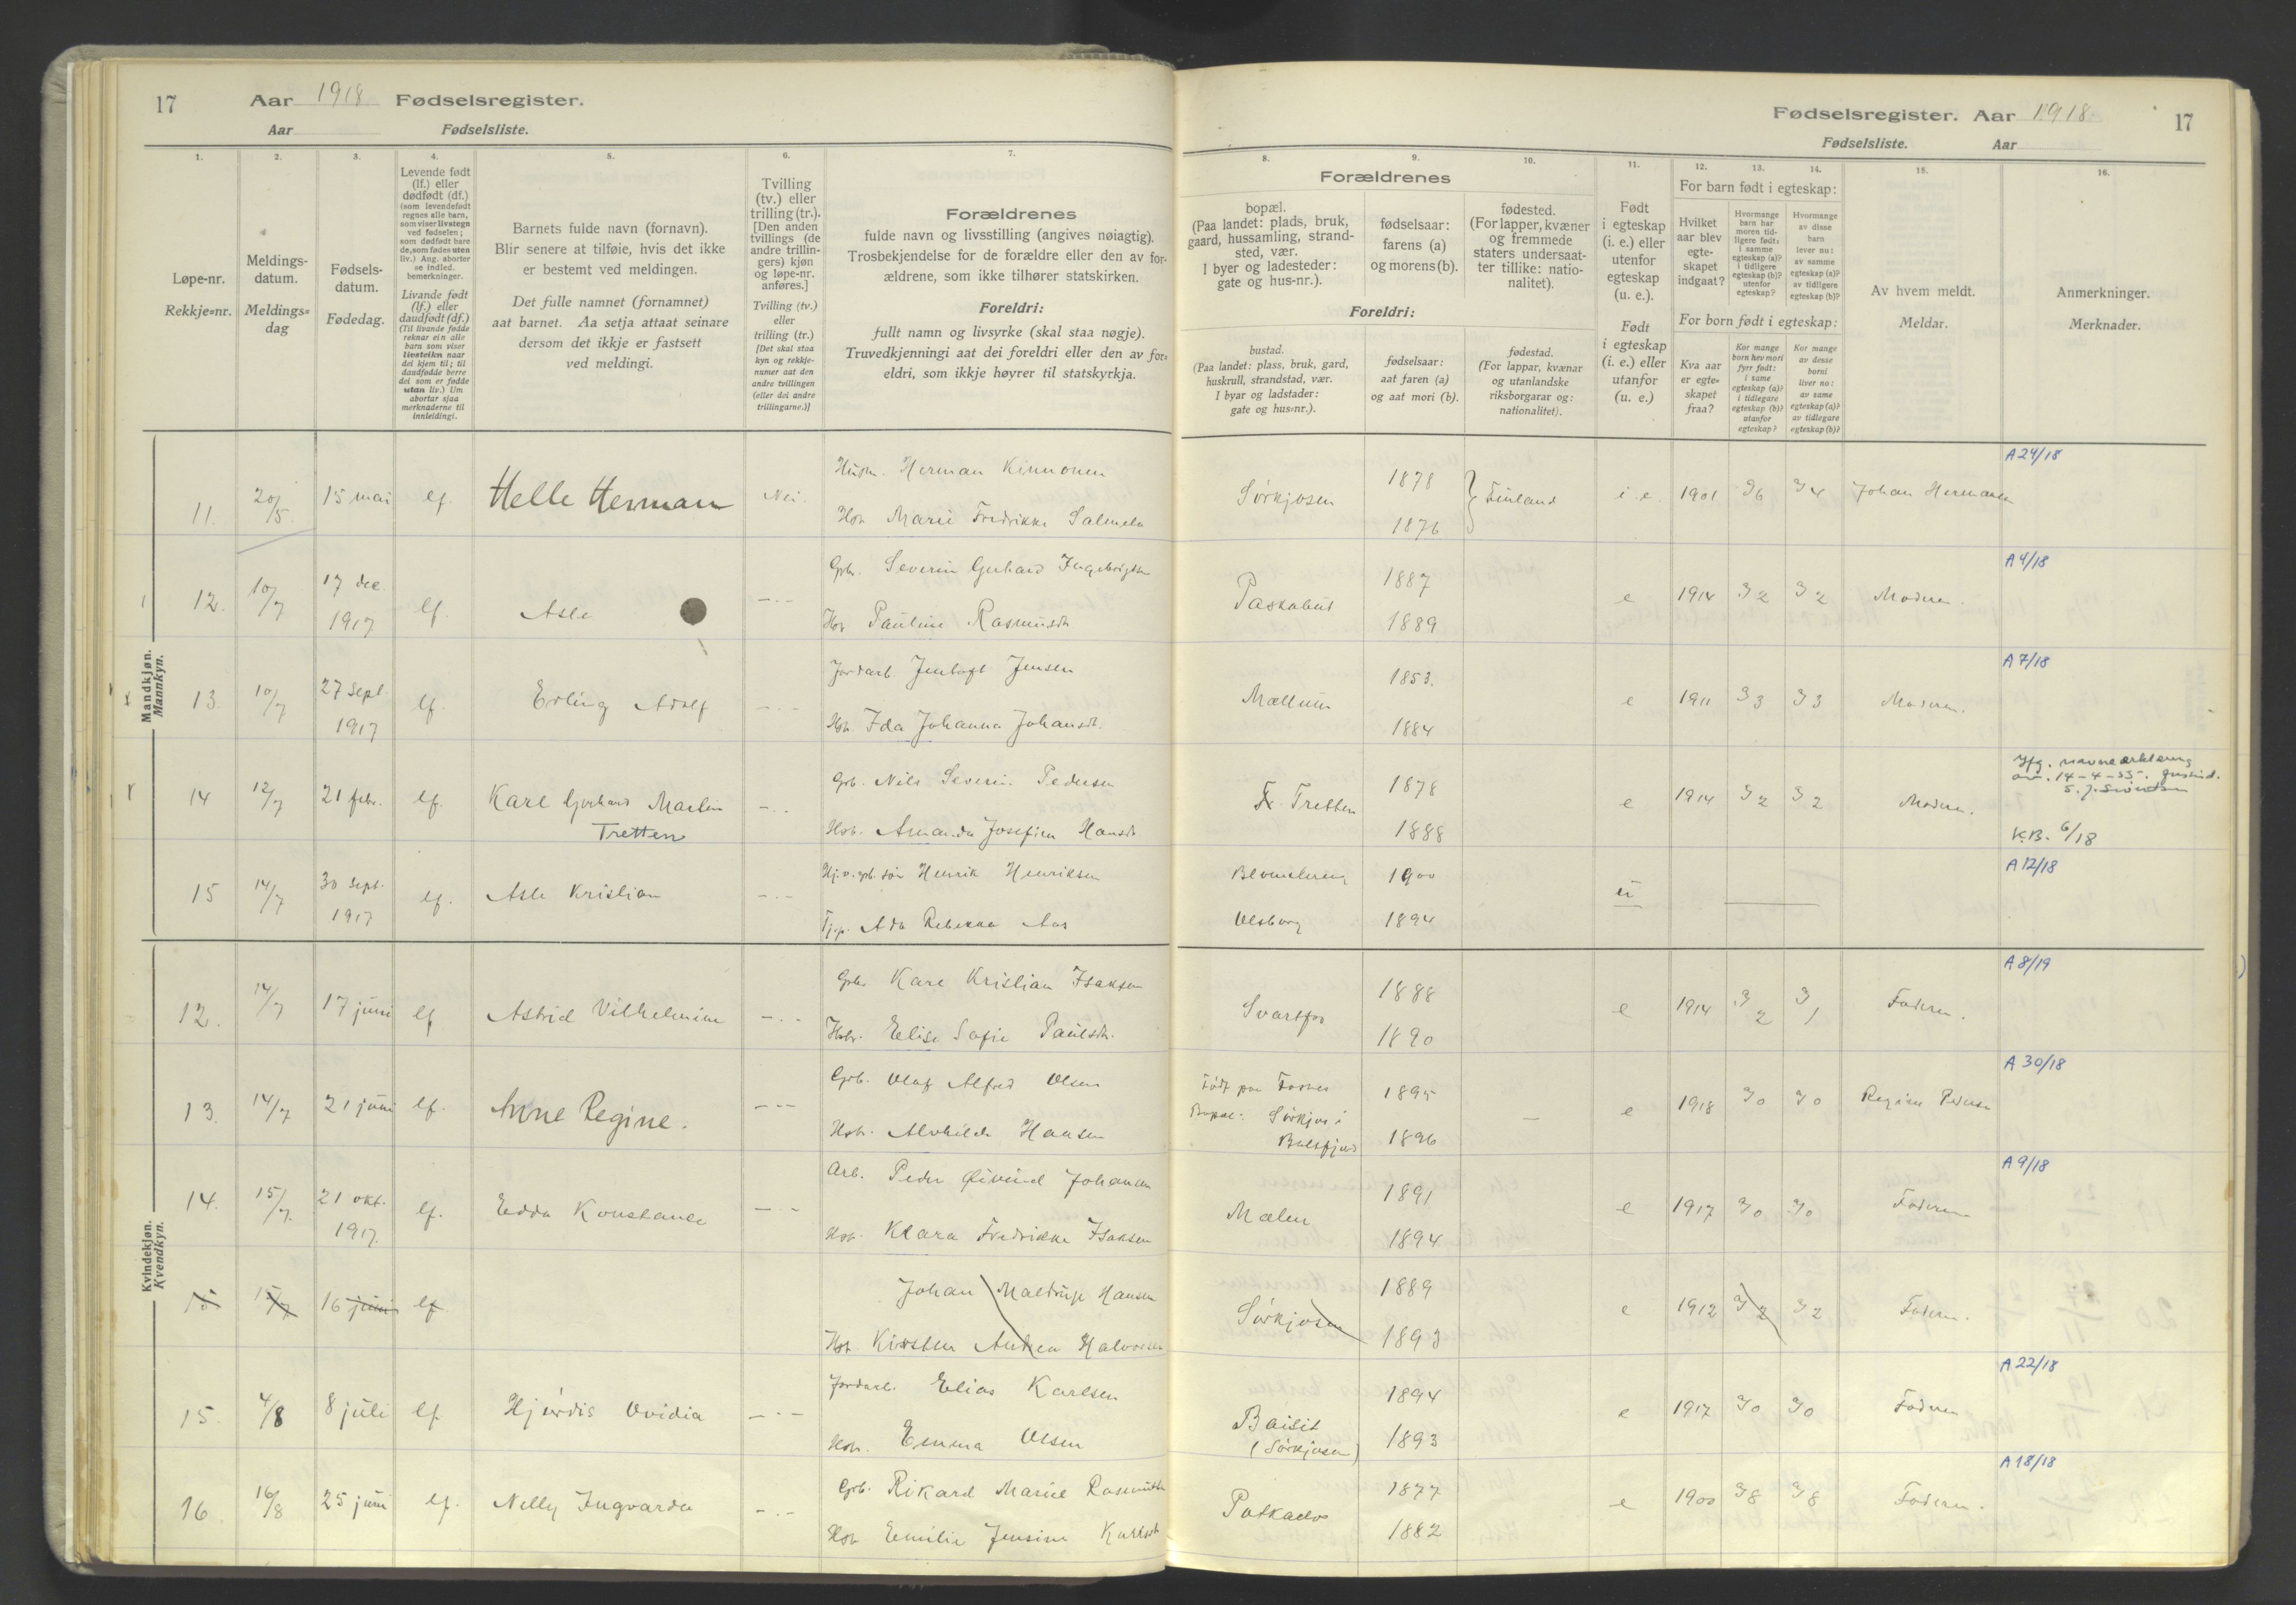 17 Aar 1918 Fødselsregister.
Aar Fødselsliste.
1.
Løpe-nr.
Rekkje=nr.
2.
Meldings-
datum.
Meldings=
dag
3.
Fødsels-
datum.
Fødedag.
4.
Levende født
(lf.) eller
dødfødt (df.)
(som levendefødt
regnes alle barn,
som viser livstegn
ved fødselen;
som dødfødt bare
de, som fødes uten
liv.) Ang. abortor
se indled.
bemerkninger.
Livande født
(lf.) eller
daudfødt (df.)
(Til livande fødde
reknar ein alle
barn som viser
livsteikn naar
dei kjem til; til
daudfødde berre
dei som er fødde
utan liv.) Um
abortar sjaa
merknaderne til
innleidingi.
5.
Barnets fulde navn (fornavn).
Blir senere at tilføie, hvis det ikke
er bestemt ved meldingen.
Det fulle namnet (fornamnet)
aat barnet. Aa setja attaat seinare
dersom det ikkje er fastsett
ved meldingi.
6.
Tvilling
(tv.) eller
trilling (tr.).
[Den anden
tvillings (de
andre trillin-
gers) kjøn
og løpe-nr.
anføres.]
Tvilling (tv.)
eller
trilling (tr.)
[Det skal staa
kyn og rekkje-
numer aat den
andre tvillingen
(eller dei andre
trillingarne.)]
7.
Forældrenes
fulde navn og livsstilling (angives nøiagtig).
Trosbekjendelse for de forældre eller den av for-
ældrene, som ikke tilhører statskirken.
Foreldri:
fullt namn og livsyrke (skal staa nøgje).
Truvedkjenningi aat dei foreldri eller den av for=
eldri, som ikkje høyrer til statskyrkja.
Mandkjøn.
Mannkyn.
11. 20/5. 15 mai lf. Helle Herman Nei. Husm. Herman Kinnonen
Hstr Marie Fredrikke Salmela
12. 10/7 17 dec. 1917 lf. Asle Gbr. Severin Gerhard Ingebrigtsen
Hstr Pauline Rasmusdtr.
13. 10/7 27 sept. 1917 lf. Erling Adolf Jordarb. Jentoft Jensen
Hstr. Ida Johanna Johansdtr.
14 12/7 21 febr. lf. Kare Gerhard Martin
Tretten Gbr. Nils Severin Pedersen
Hstr. Amanda Josefine Hansdtr.
15 14/7 30 sept. 1917 lf. Asle Kristian Henrik Henriksen
Tjp. Ada Rebekka Aas
Kvindekjøn.
Kvendkyn.
12. 14/7 17 juni lf Astrid Vilhelmine Gbr. Kare Kristian Isaksen
Hstr. Elise Sofie Paulsdtr.
13. 14/7 21 juni lf. Anne Regine. Gbr. Olaf Alfred Olsen
Hstr. Alvhilde Hansen
14. 15/7. 21 okt. 1917. lf. Edda Konstance Arb. Peder Øivind Johansen
Hstr. Klara Fredrikke Isaksen
15 15/7 16 juni lf Johan Maldrup Hansen
Hstr Kirsten Andrea Halvorsen
15. 4/8 8 juli lf. Hjørdis Ovidia Jordarb. Elias Karlsen
Hstr. Emma Olsen
16. 16/8 25 juni lf. Nelly Ingvarda Gbr. Rikard Marius Rasmussen
Hstr Emilie Jensine Karlsdtr
Fødselsregister. Aar 1918. 17
Fødselsliste. Aar
8.
Forældrenes
bopæl.
(Paa landet: plads, bruk,
gaard, hussamling, strand-
sted, vær.
I byer og ladesteder:
gate og hus-nr.).
Foreldri:
bustad.
(Paa landet: plass, bruk, gard,
huskrull, strandstad, vær.
I byar og ladstader:
gate og hus=nr.).
9.
fødselsaar:
farens (a)
og morens (b).
fødselsaar:
aat faren (a)
og aat mori (b).
10.
fødested.
(For lapper, kvæner
og fremmede
staters undersaat-
ter tillike: natio-
nalitet).
fødestad.
(For lappar, kvænar
og utanlandske
riksborgarar og:
nationalitet).
11.
Født
i egteskap
(i. e.) eller
utenfor
egteskap
(u. e.).
Født
i egteskap
(i. e.) eller
utanfor
egteskap
(u. e.)
12. 13. 14.
For barn født i egteskap:
Hvilket
aar blev
egte-
skapet
indgaat?
Hvormange
barn har
moren tid-
ligere født:
i samme
egteskap (a)?
i tidligere
egteskap (b)?
utenfor
egteskap?
Hvormange
av disse
barn
lever nu:
av samme
egteskap (a)?
av tidligere
egteskap (b)?
For born født i egteskap:
Kva aar
er egte=
skapet
fraa?
Kor mange
born hev mori
fyrr født:
i same
egteskap (a)?
i tidlegare
egteskap (b)?
utanfor
egteskap?
Kor mange
av desse
borni
liver no:
av same
egteskap (a)?
av tidlegare
egteskap (b)?
15.
Av hvem meldt.
Meldar.
16.
Anmerkninger.
Merknader.
Sörkjosen 1878 1876 } Finland i. e. 1901 I 6 I 4 Johan Hermansen A 24/18
1887 1889 e 1914 I 2 I 2 Moderen. A 4/18
1853. 1884 e 1911 I 3 I 3 Moderen. A 7/18
Tretten 1878 1888 e 1914 I 2 I 2 Moderen. Ifg. navneerklæring
av. 14-4-55.
K.B. 6/18
Olsborg 1900 1894 u A 12/18
Svartfos 1888 1890 e 1914 I 2 I 1 Faderen. A 8/19
Født paa
Bopæl: Sörkjos i
Balsfjord 1895 1896 — e 1918 I 0 I 0 Regine Pedersen A 30/18
Mælen 1891 1894 e 1917 I 0 I 0 Faderen A 9/18
Sörkjosen 1889 1893 e 1912 I 2 I 2 Faderen.
(Sörkjosen) 1894 1893 e 1917 I 0 I 0 Faderen A 22/18
1877 1882 e 1900 I 8 I 8 Faderen. A 18/18